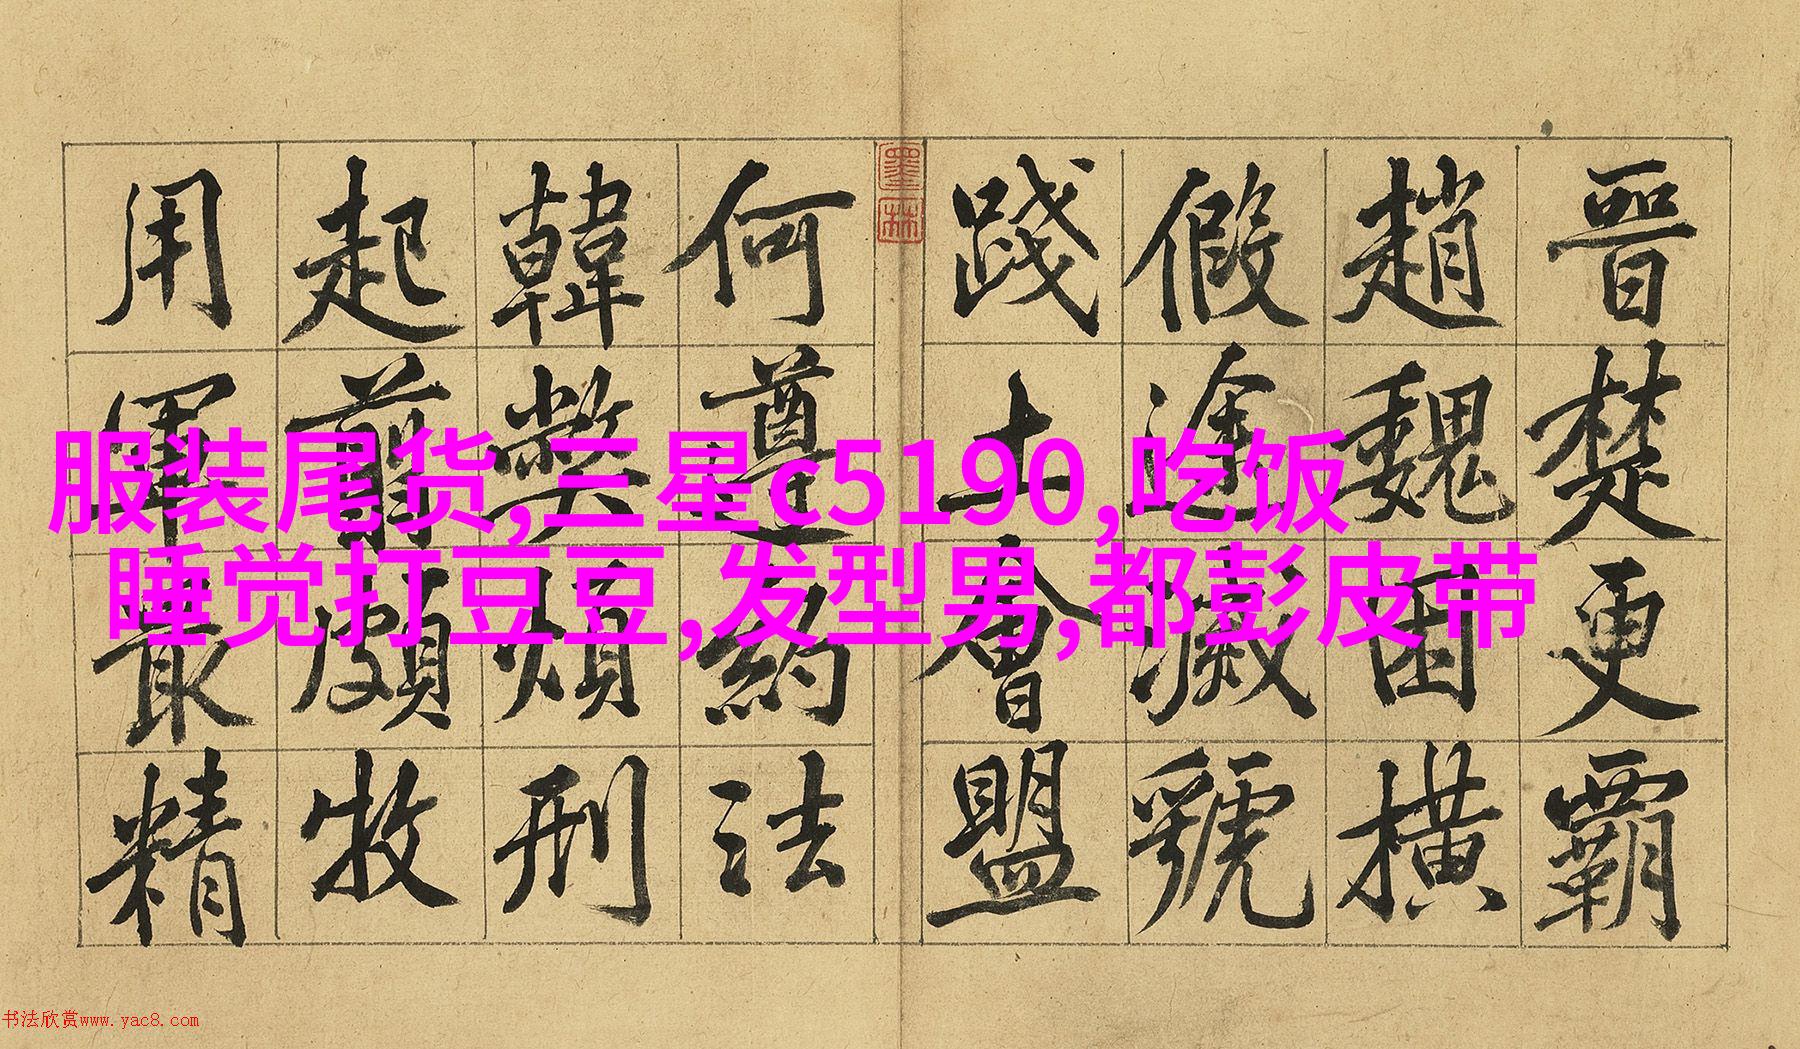 晉楚更霸
趙魏困橫
假途滅虢
踐土會盟
何遵約法
韓弊煩刑
起翦頗牧
用軍最精
墨林
服装尾货,三星c5190,吃饭
睡觉打豆豆,发型男,都彭皮带
书法欣赏www.yac8.com